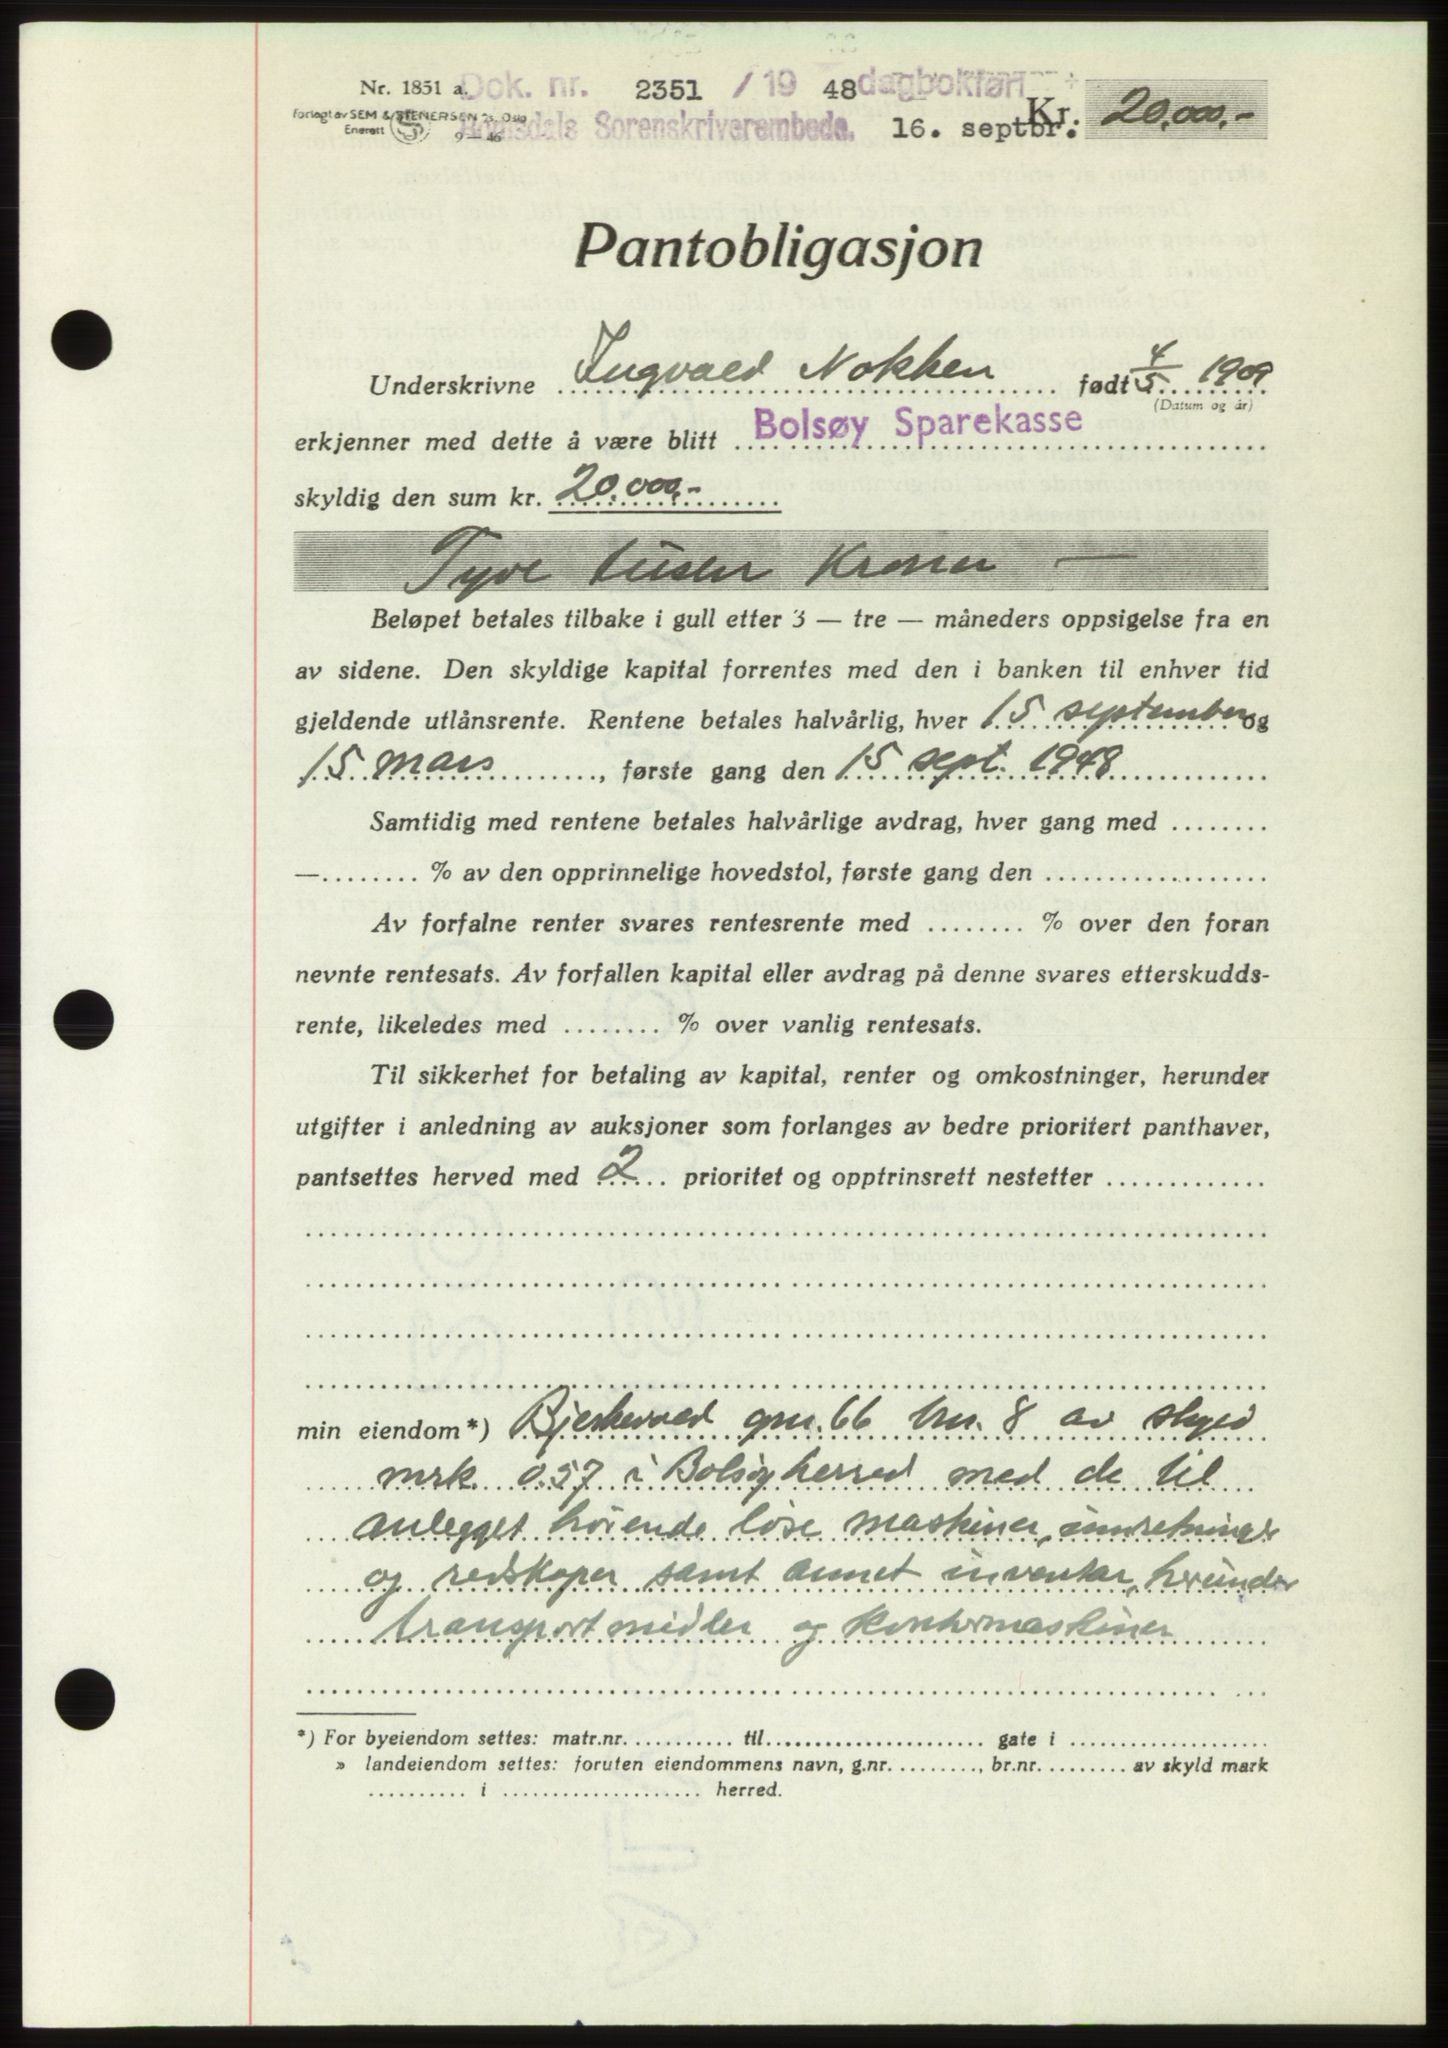 Nr. 1851 a. Dok. nr. 2351 / 19 48 dagbokført
Forlagt av SEM & STENERSEN A/S. Oslo Romsdals Sorenskriverembede. 16. septbr. Kr. 20.000,-
Enerett 9-46
Pantobligasjon
Underskrivne Ingvald Nokken født 4/5 1909
(Datum og år)
erkjenner med dette å være blitt Bolsøy Sparekasse
skyldig den sum kr. 20.000,-
Tyve tusen Kroner —
Beløpet betales tilbake i gull etter 3 — tre — måneders oppsigelse fra en
av sidene. Den skyldige kapital forrentes med den i banken til enhver tid
gjeldende utlånsrente. Rentene betales halvårlig, hver 15 september og
15 mars, første gang den 15 sept. 1948
Samtidig med rentene betales halvårlige avdrag, hver gang med ........
—........ % av den opprinnelige hovedstol, første gang den ..................
Av forfalne renter svares rentesrente med ........ % over den foran
nevnte rentesats. Av forfallen kapital eller avdrag på denne svares etterskudds-
rente, likeledes med ........ % over vanlig rentesats.
Til sikkerhet for betaling av kapital, renter og omkostninger, herunder
utgifter i anledning av auksjoner som forlanges av bedre prioritert panthaver,
pantsettes herved med 2 prioritet og opptrinsrett nestetter .............
min eiendom*) Bjerkevold gnr. 66 bnr. 8 av skyld
mrk. 0.57 i Bolsøy herred med de til
anlegget hørende løse maskiner, innretninger
og redskaper samt annet inventar, herunder
transportmidler og kontormaskiner
*) For byeiendom settes: matr.nr........... til...................... gate i ....................
» landeiendom settes: foruten eiendommens navn, g.nr. ........., br.nr. ......... av skyld mark
.......... i .................... herred.